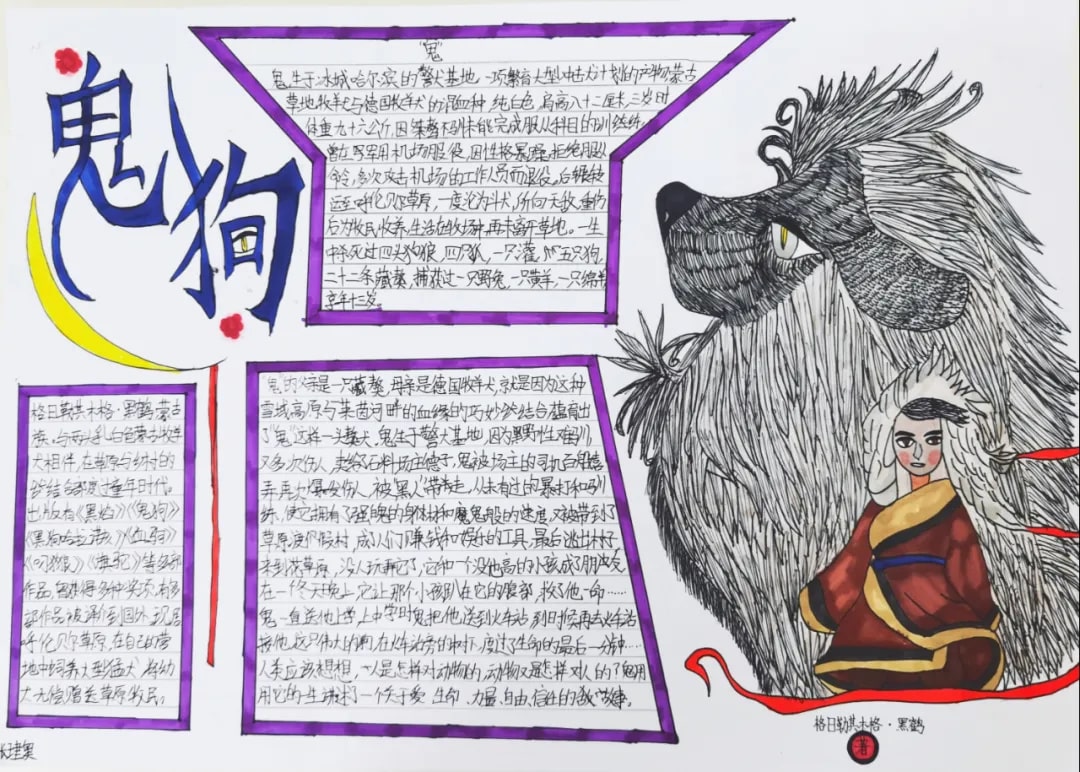 鬼狗
"鬼"
鬼生于冰城哈尔滨的警犬基地。一项繁育大型冲击犬计划的产物,蒙古
草地牧羊犬与德国牧羊犬的混血种,纯白色,肩高八十二厘米,三岁时
体重九十六公斤,因桀骜不驯未能完成服从科目的训练
曾在军用机场服役,因性格暴躁,拒绝服从
令,多次攻击机场的工作人员而退役。后辗转
运至呼伦贝尔草原,一度沦为斗犬,所向无敌,重伤
后为牧民收养,生活在牧场中,再未离开草地。一生
中杀死过四头狼,四只狐,一只獾,五只狗,
二十二条藏獒,捕获过一只野兔,一只黄羊,一只
享年十三岁。
格日勒其木格·黑鹤,蒙古
族。与两头乳白色蒙古牧羊
犬相伴,在草原与乡村的
结合部度过童年时代。
出版有《黑焰》《鬼狗》
《黑狗哈拉诺亥》《血驹》
《狼》等多部
作品,曾获得多种奖项,有多
部作品被译介到国外,现居
呼伦贝尔草原,在自己的营
地中饲养大型猛犬,将幼
犬无偿赠送草原牧民。
"鬼"的父亲是一只藏獒,母亲是德国牧羊犬,就是因为这种
雪域高原与莱茵河畔的血缘的巧妙结合,繁育出
了"鬼"这样一头猛犬,鬼生于警犬基地,因为野性难驯
又多次伤人,卖给石料场主德子,鬼被场主的司机百般
弄再次暴发伤人,被黑人带走,从未有过的暴打和驯
练,使它拥有了强魄的身材和魔鬼般的速度,又被带到了
草原度假村,成了人们赚钱和娱乐的工具,最后逃出村子
来到茫草原,没人玩弄它了,它和一个没他高的小孩成了朋友
在一个冬天晚上,它让那个小孩趴在它的腹部,救了他一命……
鬼一直送他上学,上中学时鬼把他送到火车站,到时候再去火车站
接他,这只伟大的狗,在火车站旁的树下,度过了生命的最后一分钟……
人类应该想想,人是怎样对动物的,动物又是怎样对人的?鬼用
用它的一生,谱写了一个关于爱、生命、力量、自由、信任的旋律。
格日勒其木格·黑鹤
著